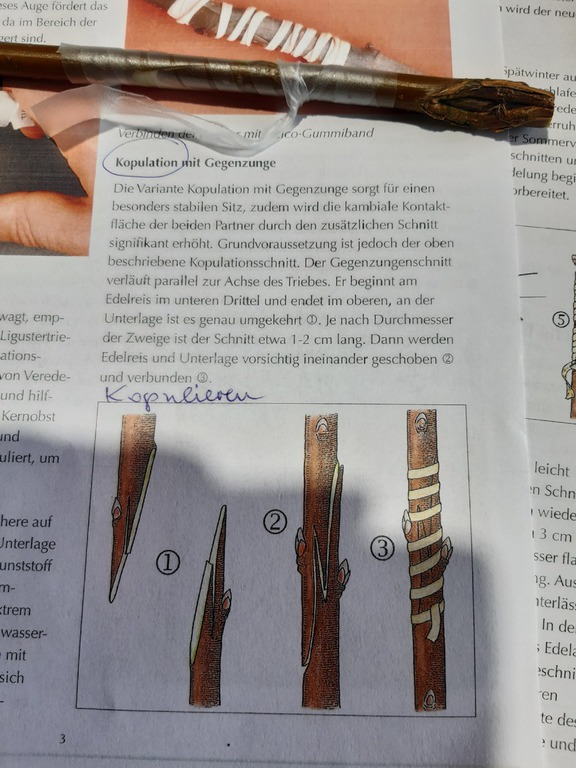 eses Auge fördert das
da im Bereich der
gert sind.
wird der neu
Verbinden mit
Kopulation mit Gegenzunge
Die Variante Kopulation mit Gegenzunge sorgt für einen
besonders stabilen Sitz, zudem wird die kambiale Kontakt-
fläche der beiden Partner durch den zusätzlichen Schnitt
signifikant erhöht. Grundvoraussetzung ist jedoch der oben
beschriebene Kopulationsschnitt. Der Gegenzungenschnitt
verläuft parallel zur Achse des Triebes. Er beginnt am
Edelreis im unteren Drittel und endet im oberen, an der
Unterlage ist es genau umgekehrt ①. Je nach Durchmesser
der Zweige ist der Schnitt etwa 1-2 cm lang. Dann werden
Edelreis und Unterlage vorsichtig ineinander geschoben ②
und verbunden ③.
Kopulieren
①
②
③
3
wagt, emp-
Ligustertrie-
ations-
von Verede-
und hilf-
Kernobst
und
uliert, um
here auf
Unterlage
unststoff
m-
xtrem
wasser-
mit
sich
-
pätwinter au
Sommerv
schnitten u
delung begi
orbereitet.
⑤
leicht
n Schn
wiede
3 cm
sser fla
ng. Aus
nterläss
In de
Edela
eschni
ren
te des
e und